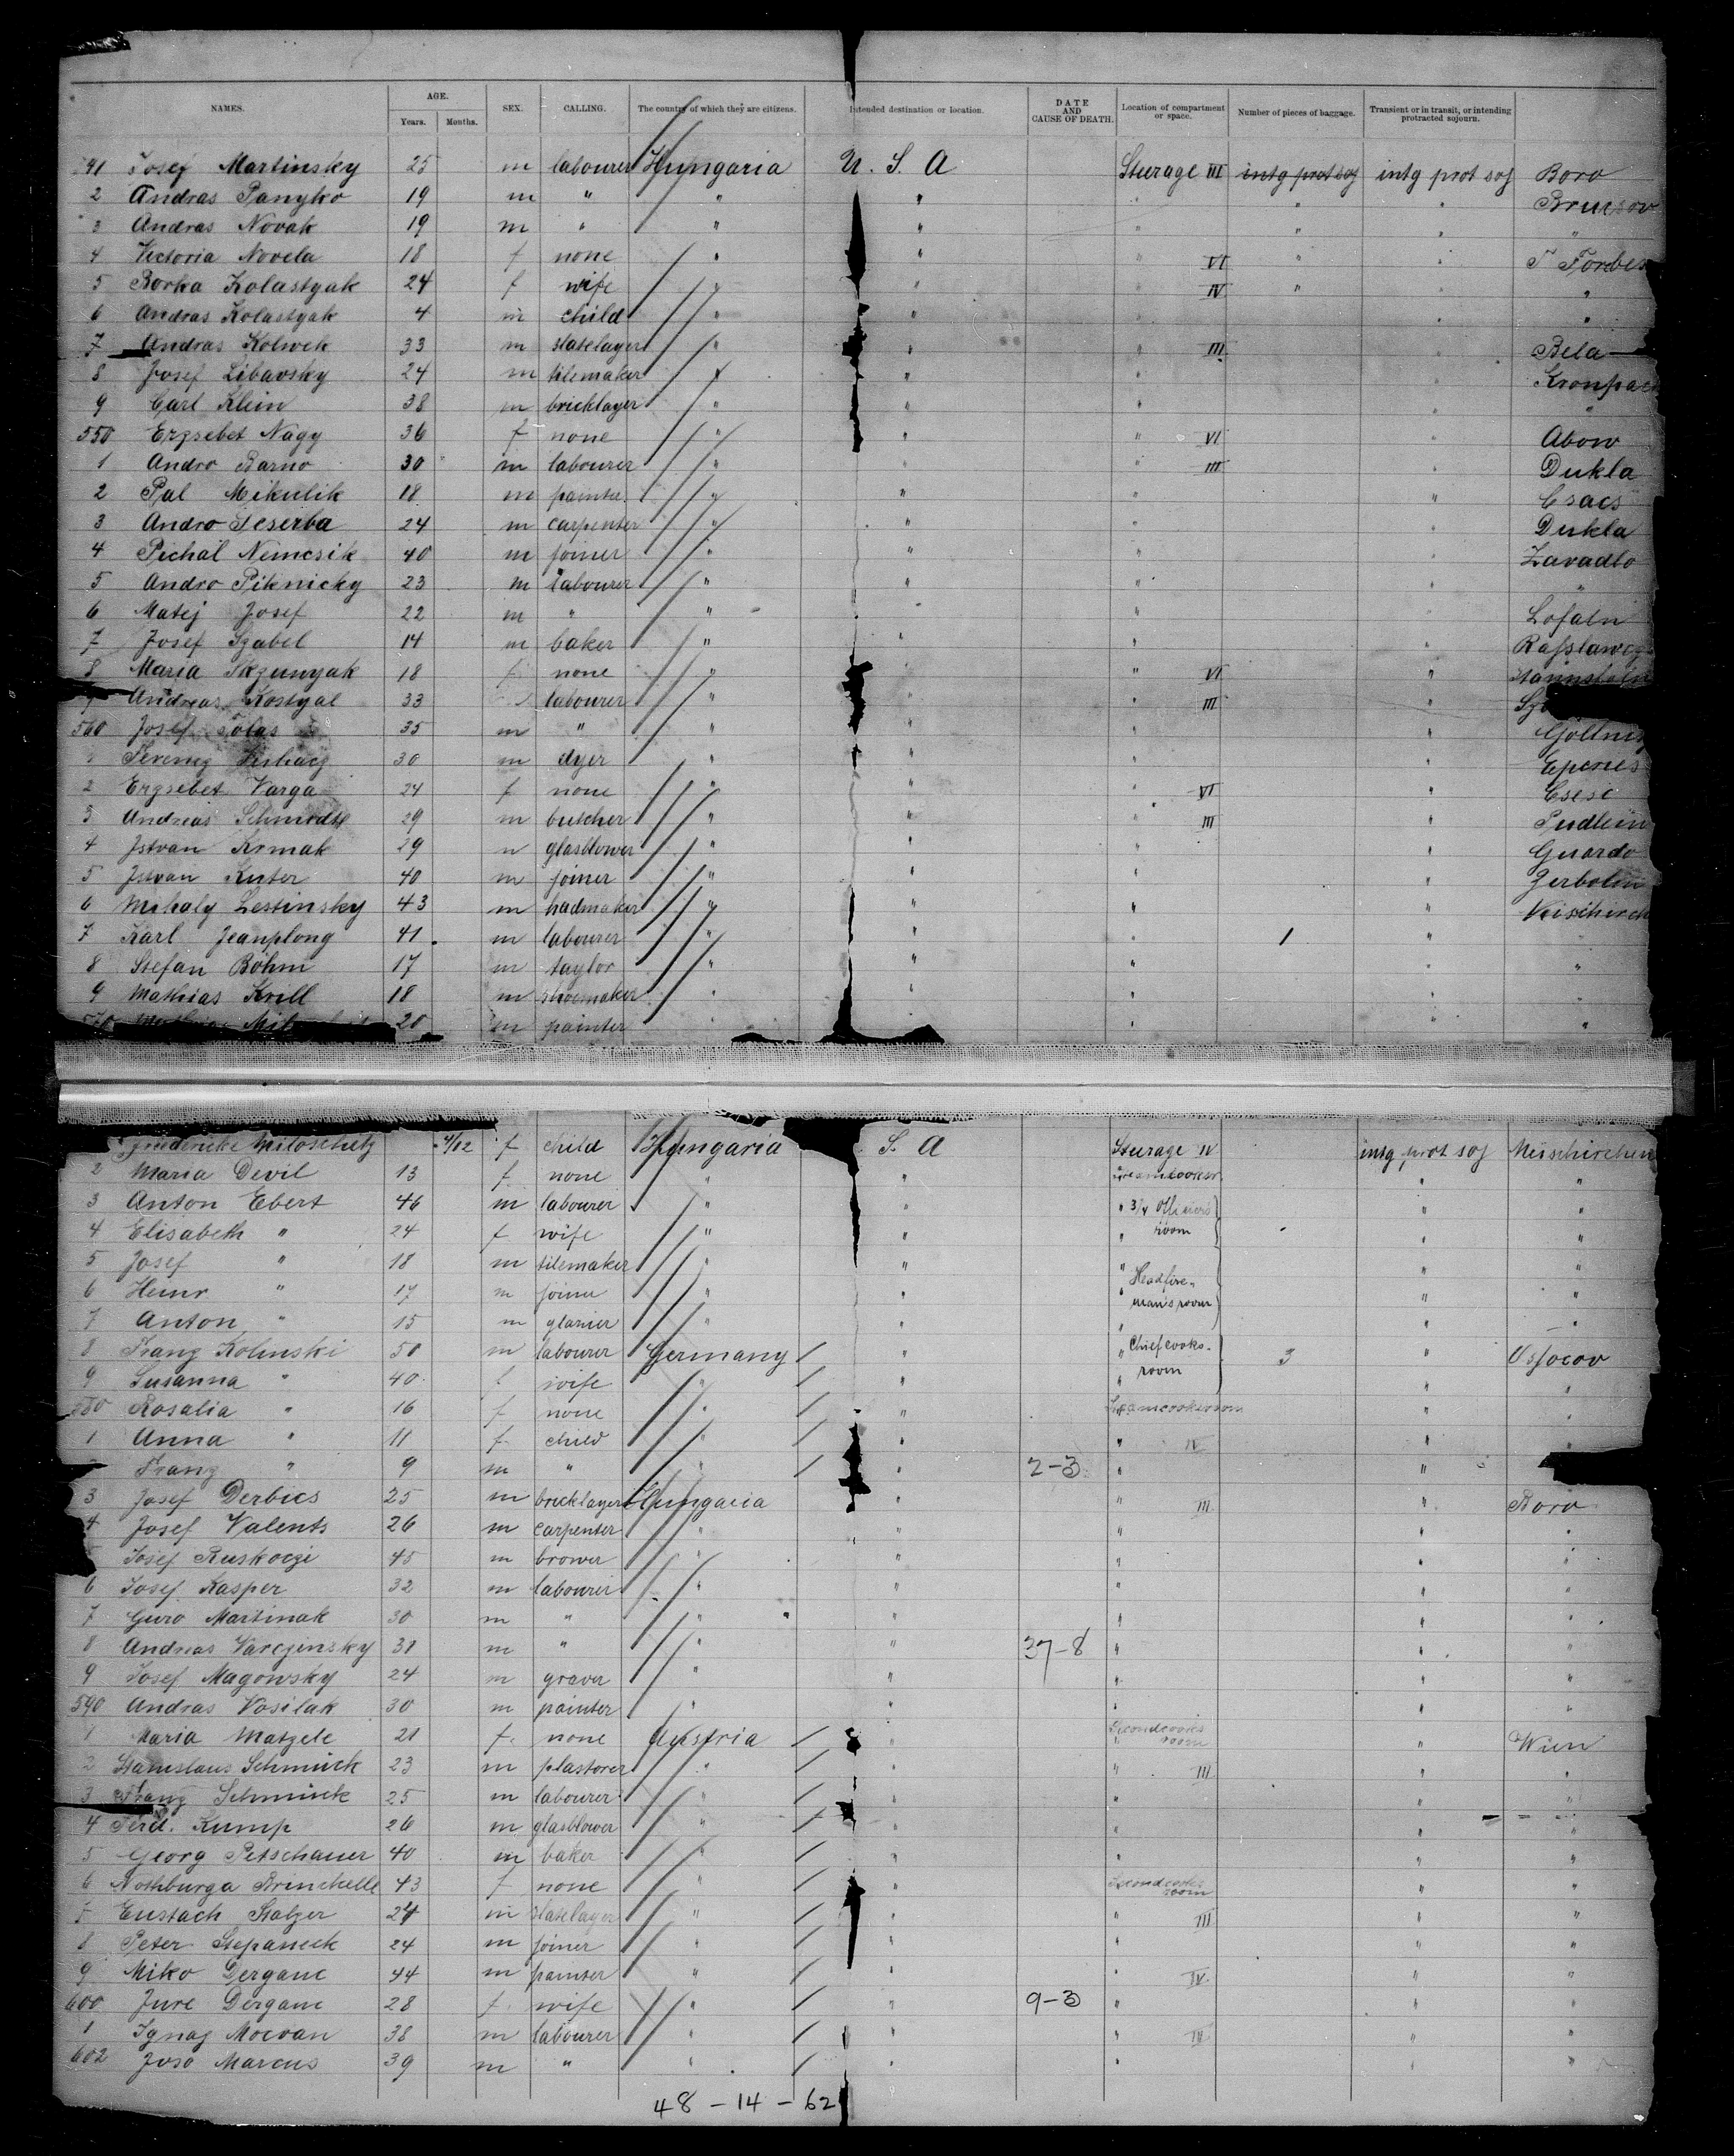 NAMES. AGE. Years. Months. SEX. CALLING. The country of which they are citizens. Intended destination or location. DATE AND CAUSE OF DEATH. Location of compartment or space. Number of pieces of baggage. Transient or in transit, or intending protracted sojourn.
541 Josef Martinsky 25 m labourer Hungaria U. S. A Steurage III intg prot soj intg prot soj Boro
2 Andras Panyko 19 m " " " " " "
3 Andras Novak 19 m " " " " " " "
4 Victoria Novela 18 f none " " " VI " " T Forbes
5 Borka Kolastyak 24 f wife " " " IV " " "
6 Andras Kolastyak 4 m child " " " " "
7 Andras Kolwek 33 m slatelayer " " " III " Bela
8 Josef Libavsky 24 m tilemaker " " " "
9 Carl Klein 38 m bricklayer " " " " "
550 Erzsebet Nagy 36 f none " " " VI " Abow
1 Andro Barno 30 m labourer " " " III " Dukla
2 Pal Mikulik 18 m painter " " " " Csacs
3 Andro Scserba 24 m carpenter " " " " Dukla
4 Pichal Nemcsik 40 m joiner " " " " Zavadlo
5 Andro Piknicky 23 m labourer " " " " "
6 Matej Josef 22 m " " " " " Lofaln
7 Josef Szabel 14 m baker " " " "
8 Maria Skzunyak 18 f none " " " VI "
9 Andreas Kostyal 33 labourer " " " III "
560 Josef Tolas 35 m " " " " "
Ferencz 30 m dyer " " " " Eperies
2 Erzsebet Varga 24 f none " " " VI " Csesc
3 Andreas Schmidt 29 m butcher " " " III " Pudlein
4 Istvan Krmak 29 m glasblower " " " " Guardo
5 Istvan Kuter 40 m joiner " " " " Zerbolin
6 Mihaly Lestinsky 43 m hadmaker " " " "
7 Karl Jeanplong 41 m labourer " " " 1 " "
8 Stefan Böhm 17 m taylor " " " " "
9 Mathias Krill 18 m shoemaker " " " " "
570 20 m painter " " " " "
Friedericke Miloschetz 4/12 f child Hungaria S. A Steurage IV intg prot soj
2 Maria Devil 13 f none " " " "
3 Anton Ebert 46 m labourer " " " 3/4 Officers " "
4 Elisabeth " 24 f wife " " " room " "
5 Josef " 18 m tilemaker " " " " "
6 Heinr " 17 m joiner " " " Headfire- mans room " "
7 Anton " 15 m glasier " " " " "
8 Franz Kolinski 50 m labourer Germany " " Chiefcooks- room 3 "
9 Susanna " 40 f wife " " " " "
580 Rosalia " 16 f none " " Steamcooksroom " "
1 Anna " 11 f child " " " IV " "
Franz " 9 m " " " 2-3 " "
3 Josef Derbics 25 m bricklayer Hungaria " " III " Boro
4 Josef Valents 26 m carpenter " " " " "
Josef Ruskoczi 45 m brower " " " " "
6 Josef Kasper 32 m labourer " " " " "
7 Guro Martinak 30 m " " " " " "
8 Andreas Varczinsky 38 m " " " 37-8 " " "
9 Josef Magowsky 24 m graver " " " " "
590 Andras Vasilak 30 m painter " " " " "
1 Maria Matzele 21 f none Austria " Secondcooks room " Wien
2 Stanislaus Schmuck 23 m plastorer " " " III " "
3 Franz Schmuck 25 m labourer " " " " "
4 Ferd. Kump 26 m glasblower " " " " "
5 Georg Petschauer 40 m baker " " " " "
6 Nothburga 43 f none " " Secondcooks room " "
7 Eustach Stalzer 24 m slatelayer " " " III " "
8 Peter Stepaneck 24 m joiner " " " " "
9 Miko Dergane 44 m painter " " " IV " "
600 Jure Dergane 28 f wife " " 9-3 " " "
1 Ignaz Mocvan 38 m labourer " " " III " "
602 Joso Marcus 39 m " " " " " "
48 - 14 - 62